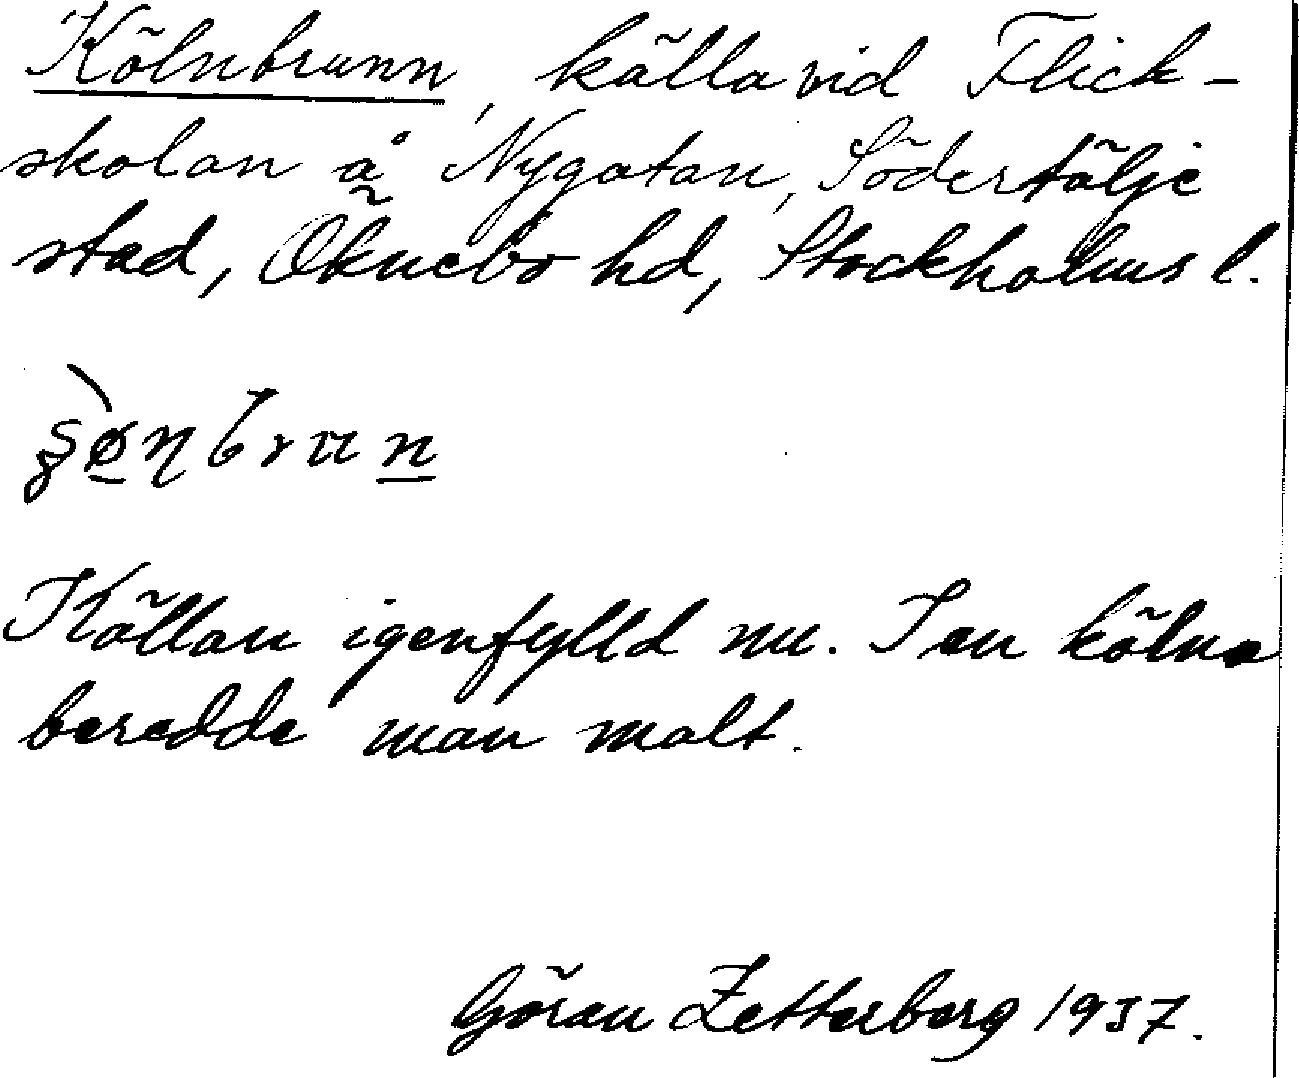 Kölnbrunn, källa vid Flick-
skolan å Nygatan, Södertälje
stad, Öknebo hd, Stockholms l.
Källan igenfylld nu. I en kölna
beredde man malt.
Göran Zetterberg 1937.